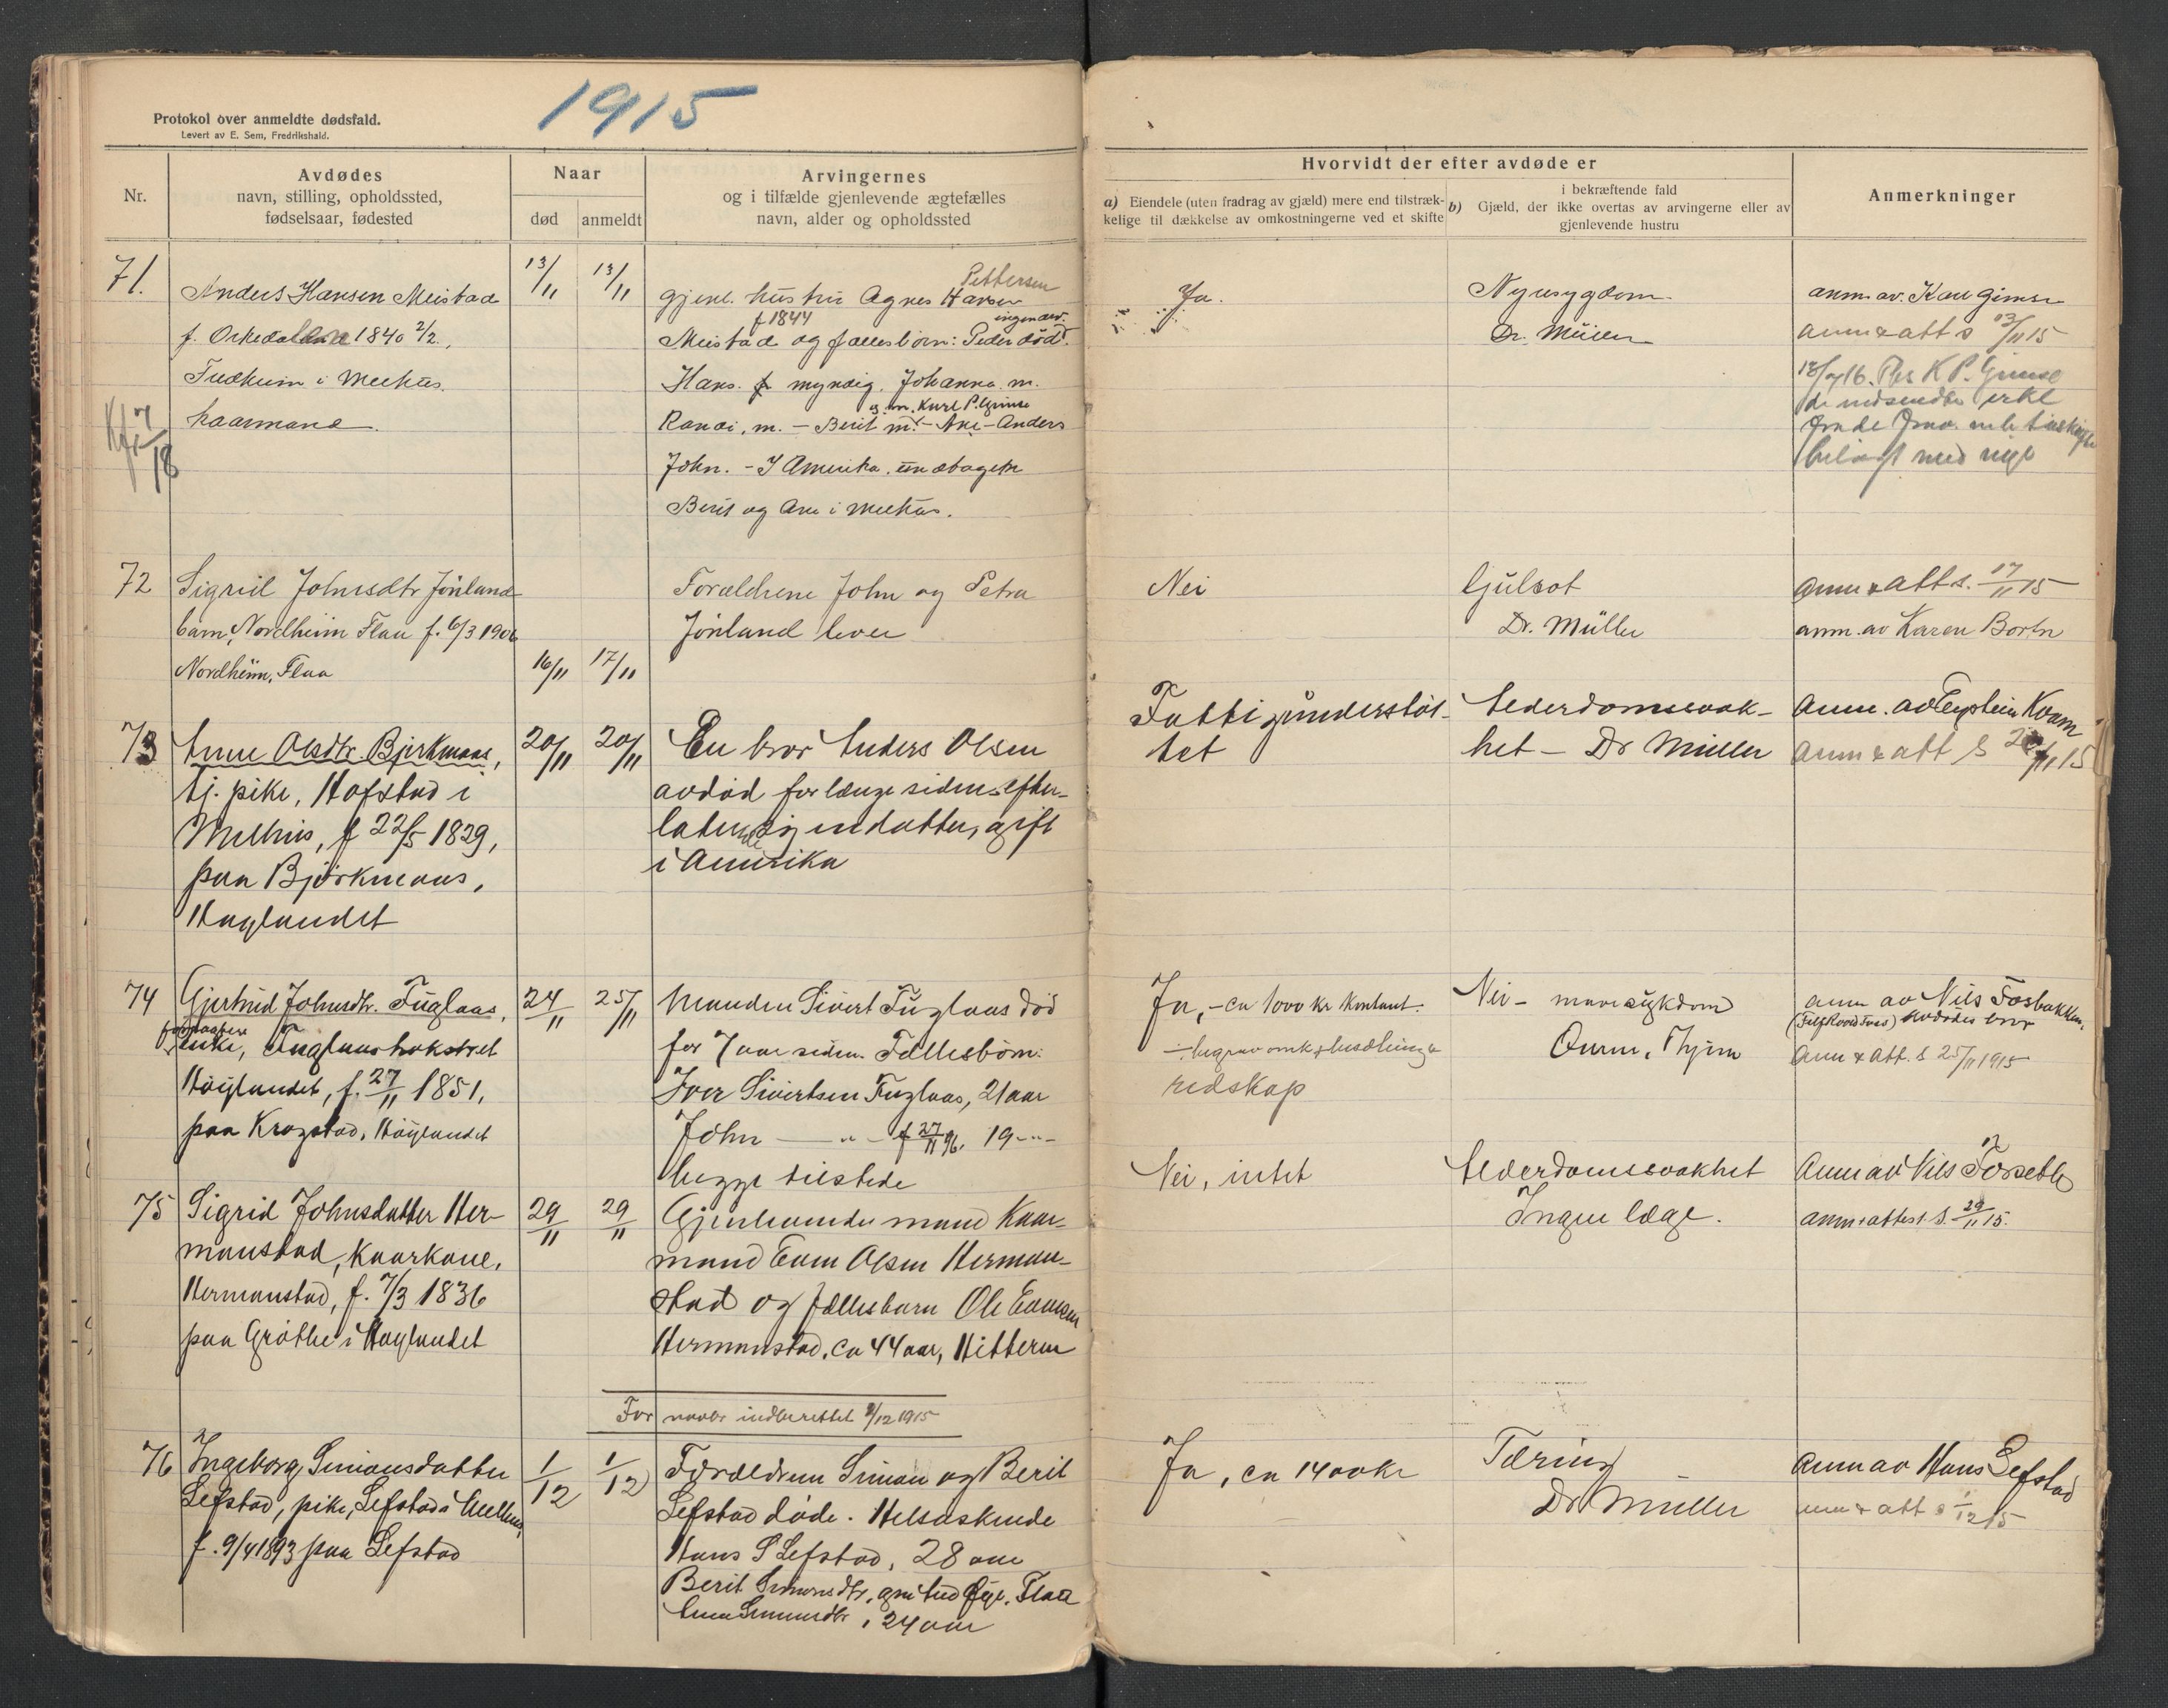 1915
Protokol over anmeldte dødsfald.
Levert av E. Sem, Fredrikshald.
Nr.
Avdødes
navn, stilling, opholdssted,
fødselsaar, fødested
Naar
død
anmeldt
Arvingernes
og i tilfælde gjenlevende ægtefælles
navn, alder og opholdssted
Hvorvidt der efter avdøde er
a) Eiendele (uten fradrag av gjæld) mere end tilstræk-
kelige til dækkelse av omkostningerne ved et skifte
i bekræftende fald
b) Gjæld, der ikke overtas av arvingerne eller av
gjenlevende hustru
Anmerkninger
71.
Anders Hansen Meistad
f. Orkedalen 1840 2/2.,
i Melhus.
kaarmand.
13/11
13/11
Pettersen
gjenl. hustru Agnes Hansen
f 1844
Meistad og fællesbörn: Peder död.
Hans. myndig. Johanna. m.
g. m. Karl P. Gimse
Randi, m. – Berit m. – Ane – Anders
John. – I Amerika, undtagen
Berit og Ane i Melhus.
Ja.
Nyresygdom.
Dr. Müller
anm. av. Karl Gimse
anm & att s 13/11 15
72
Sigrid Johnsdtr Jönland
barn, Nordheim Flaa f. 6/3 1906
Nordheim, Flaa
16/11
17/11
Forældrene John og Petra
Jönland lever
Nei
Gulsot
Dr. Müller
anm & att s. 17/11 15
anm. av Karen Borten
73
Anne Olsdtr. Bjerkmoas,
tj. pike, Hofstad i
Melhus, f 22/5 1829,
paa Björkmoas,
Høylandet
20/11
20/11
En bror Anders Olsen
avdöd for længe siden efter-
latende sig en datter, gift
i Amerika
Fattigunderstöt-
tet
Alderdomssvak-
het – Dr Müller
Anm. av Eystein Kvam
anm & att s 20/11 15
74
Gjertrud Johnsdtr. Fuglaas,
enke, Fuglaas
Höylandet, f. 27/11 1851,
paa Kragstad, Höylandet
24/11
25/11
Manden Sivert Fuglaas död
for 7 aar siden. Fællesbörn:
Iver Sivertsen Fuglaas, 21 aar
John — " — f 27/11 96. 19 – " –
begge tilstede
Ja, – ca 1000 kr kontant.
redskap
Nei – mavesykdom
Qvam, Thjem
anm av Nils Fosbakken.
avdödes bror
Anm & att. s 25/11 1915
75
Sigrid Johnsdatter Her-
manstad, Kaarkone,
Hermanstad, f. 7/3 1836
paa Gröthe i Høylandet
29/11
29/11
Gjenlevende mand Kaar-
mand Even Olsen Herman-
stad og fællesbarn Ole Evensen
Hermanstad, ca 44 aar, Hitteren
Nei, intet
Alderdomssvakhet
Ingen læge.
Anm av Nils Forseth
anm & attest. s. 29/11 15.
For novbr indberettet 1/12 1915
76
Ingeborg Simonsdatter
Lefstad, pike, Lefstad i Melhus,
f. 9/4 1893 paa Lefstad
1/12
1/12
Forældrene Simon og Berit
Lefstad döde. Helsöskende
Hans S Lefstad, 28 aar
Berit Simonsdtr, Øye, Flaa
Simonsdtr, 24 aar
Ja, ca 1400 kr
Tæring
Dr Müller
Anm av Hans Lefstad
anm & att s 1/12 15